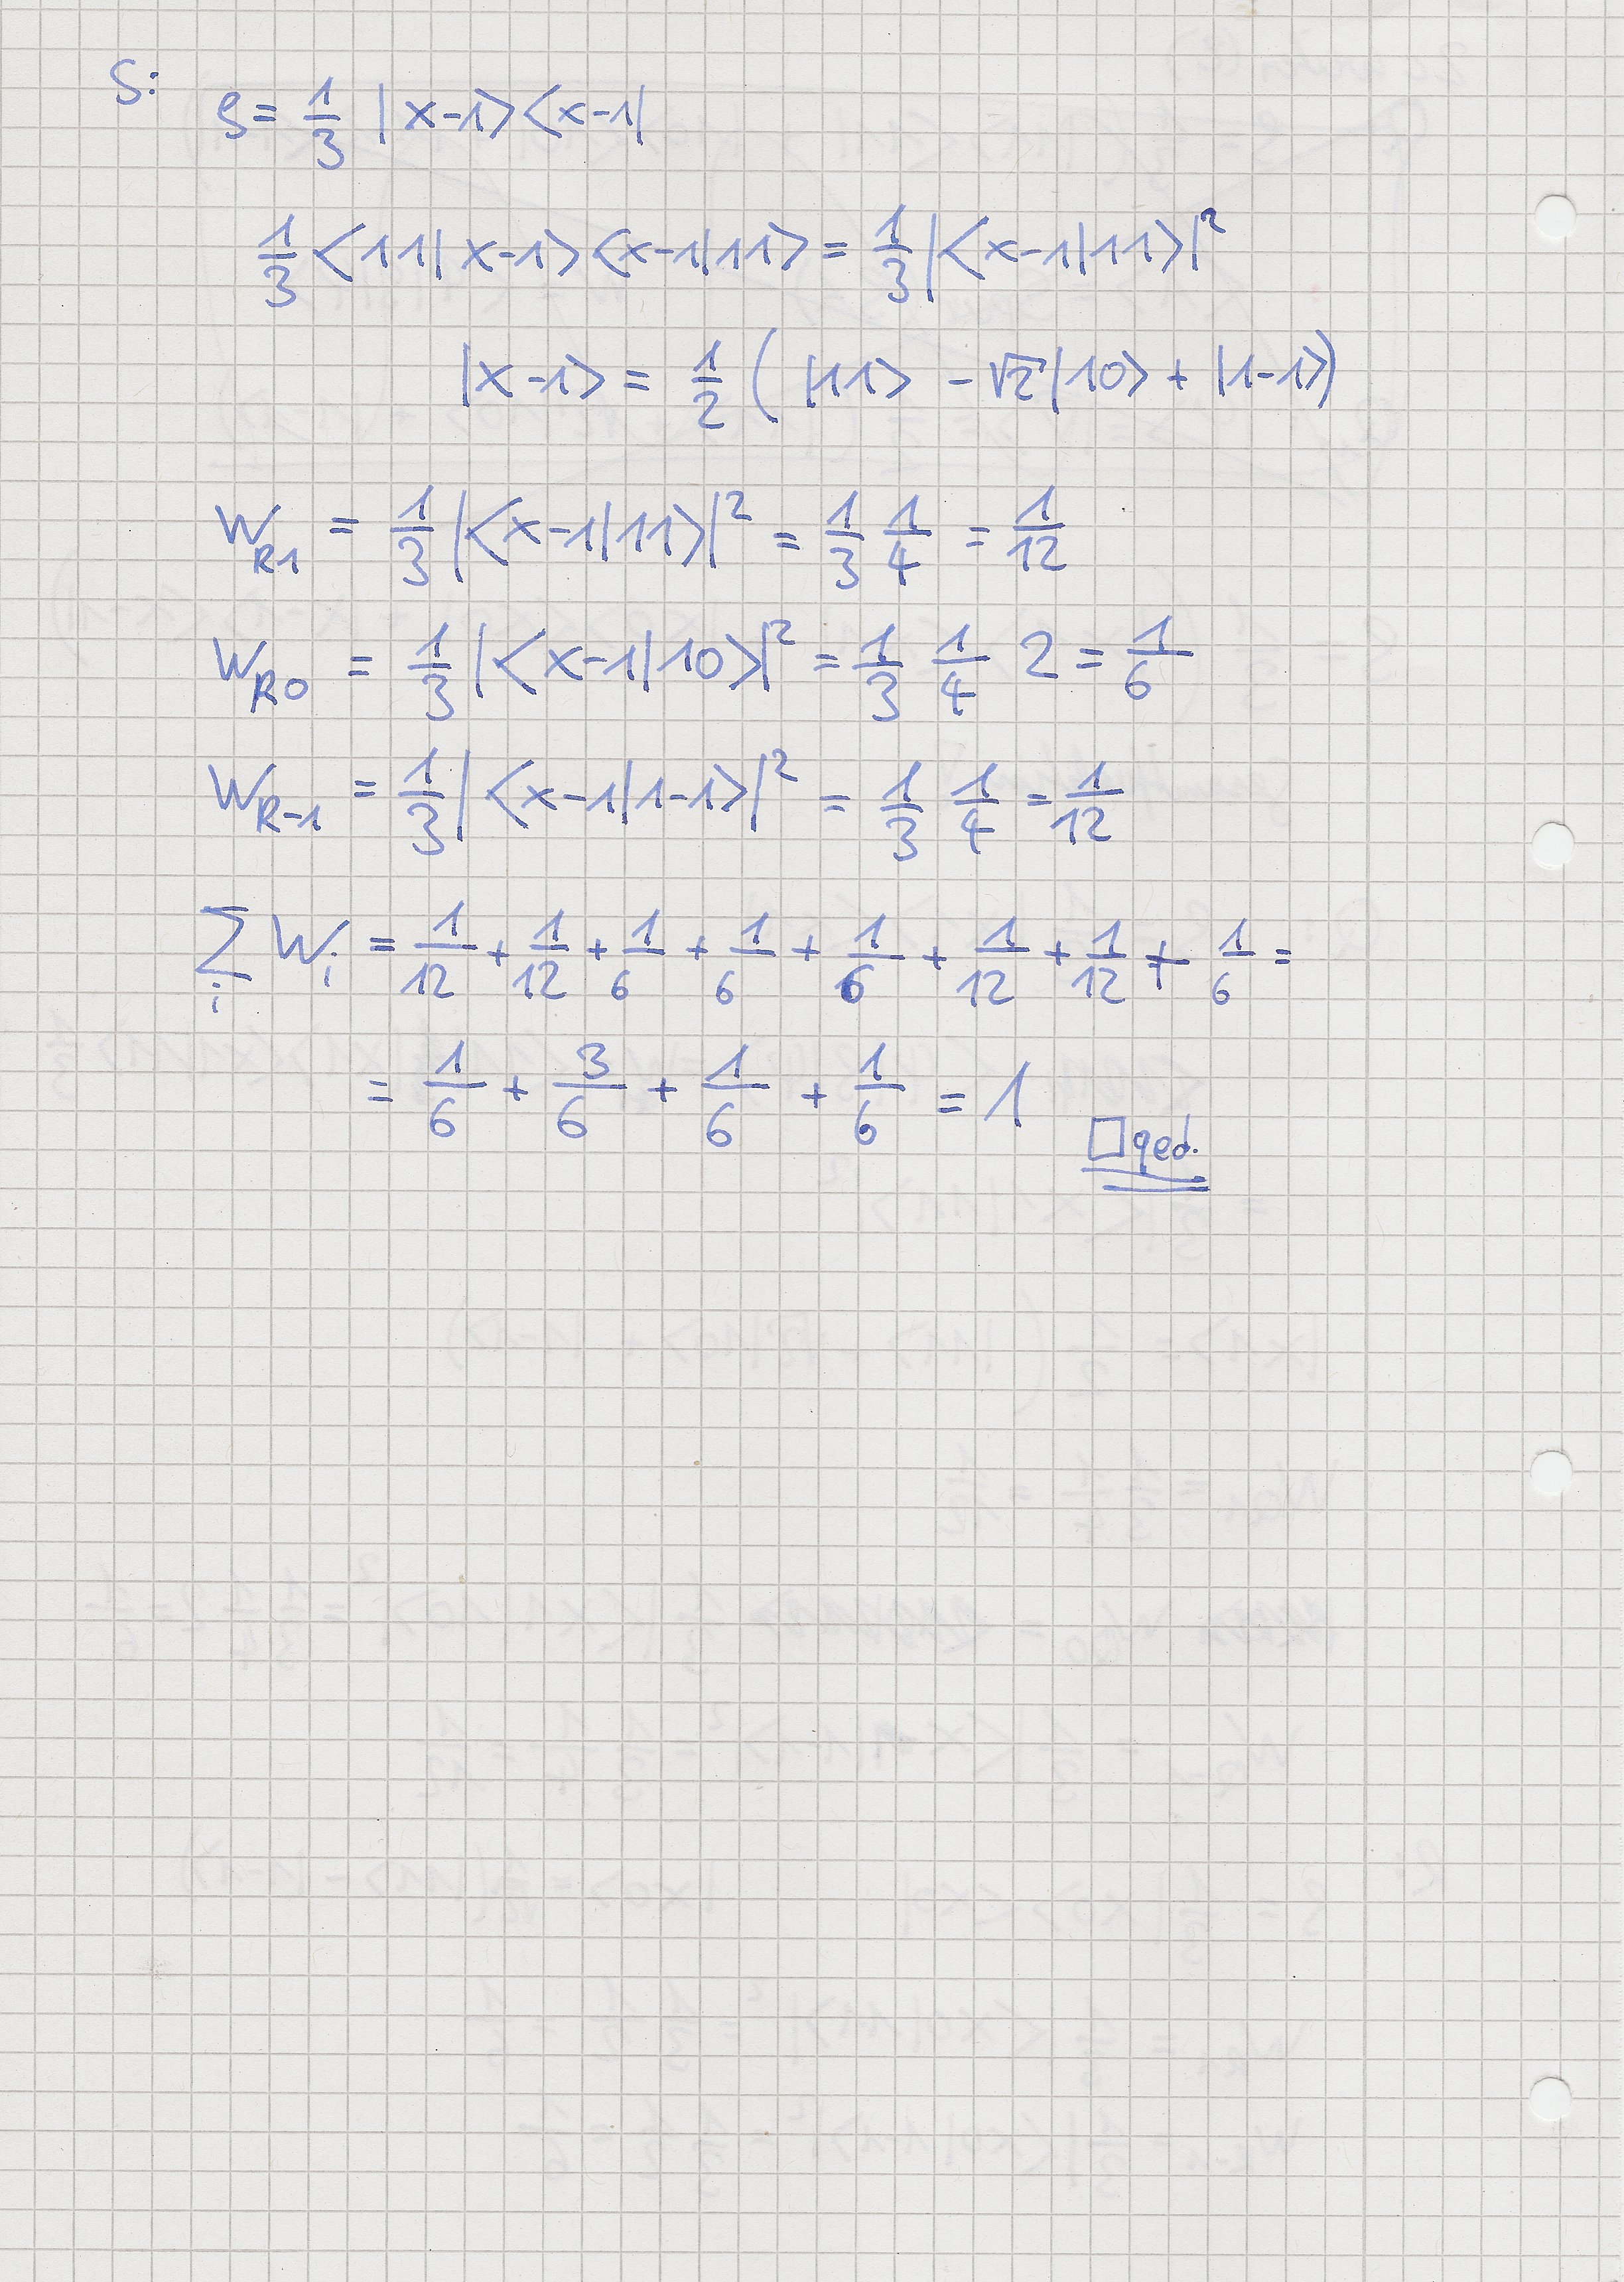 S:
ρ = 1/3 |x-1><x-1|
1/3 <11|x-1><x-1|11> = 1/3 |<x-1|11>|²
|x-1> = 1/2 ( |11> - √2 |10> + |1-1>)
W_R1 = 1/3 |<x-1|11>|² = 1/3 1/4 = 1/12
W_R0 = 1/3 |<x-1|10>|² = 1/3 1/4 2 = 1/6
W_R-1 = 1/3 |<x-1|1-1>|² = 1/3 1/4 = 1/12
∑_i W_i = 1/12 + 1/12 + 1/6 + 1/6 + 1/6 + 1/12 + 1/12 + 1/6 =
= 1/6 + 3/6 + 1/6 + 1/6 = 1
□ qed.